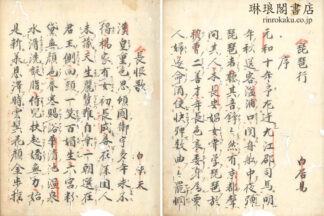 琳琅閣書店
rinrokaku.co.jp
琵琶行
白居易
序
元和十年予左遷九江郡司馬明
年秋送客湓浦口聞舟船中夜彈
琵琶者聽其音錚々然有京都聲
問其人本長安倡女嘗學琵琶於
穆曹二善才年長色衰委身為賈
人婦遂命酒使快彈數曲々罷憫
長恨歌 白樂天
漢皇重色思傾國御宇多年求不
得楊家有女初長成養在深閨人
未識天生麗質難自棄一朝選在
君王側回頭一笑百媚生六宮粉
黛無顔色春寒賜浴華清池溫泉
水滑洗凝脂侍兒扶起嬌無力始
是新承恩澤時雲鬢花顔金步搖